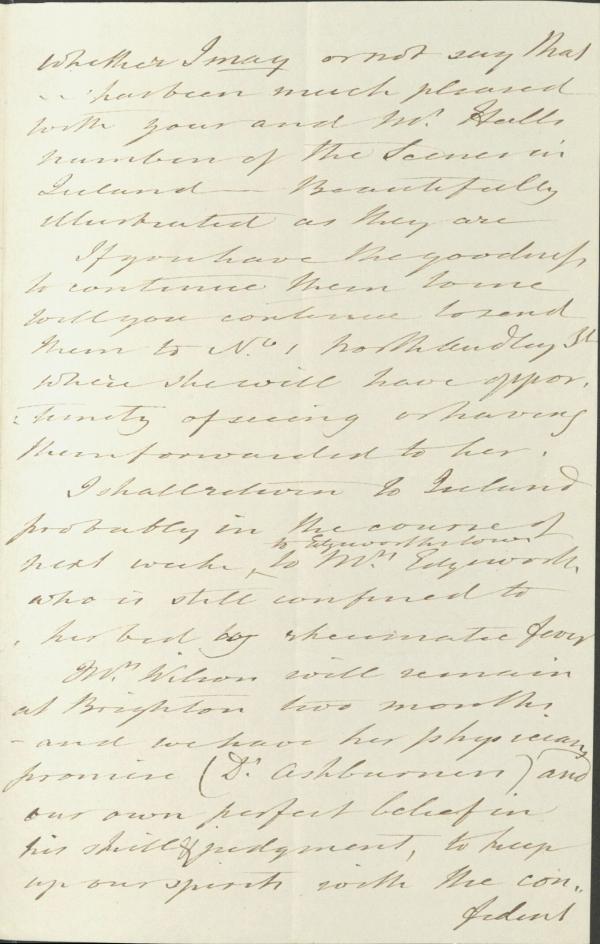 whether I may or not say that
has been much pleased
with your and Mr. Halls
number of the Scenes in
Ireland — Beautifully
illustrated as they are
If you have the goodness
to continue them to me
will you continue to send
them to No. 1 North Audley St
where she will have oppor-
-tunity of seeing or having
them forwarded to her.
I shall return to Ireland
probably in the course of
to Edgeworthstown
next week, to Mrs. Edgeworth
who is still confined to
her bed by rheumatic fever
Mrs. Wilson will remain
at Brighton two months
- and we have her physicians
promise (Dr. Ashburners) and
our own perfect belief in
his skill & judgment, to keep
up our spirits with the con-
fident